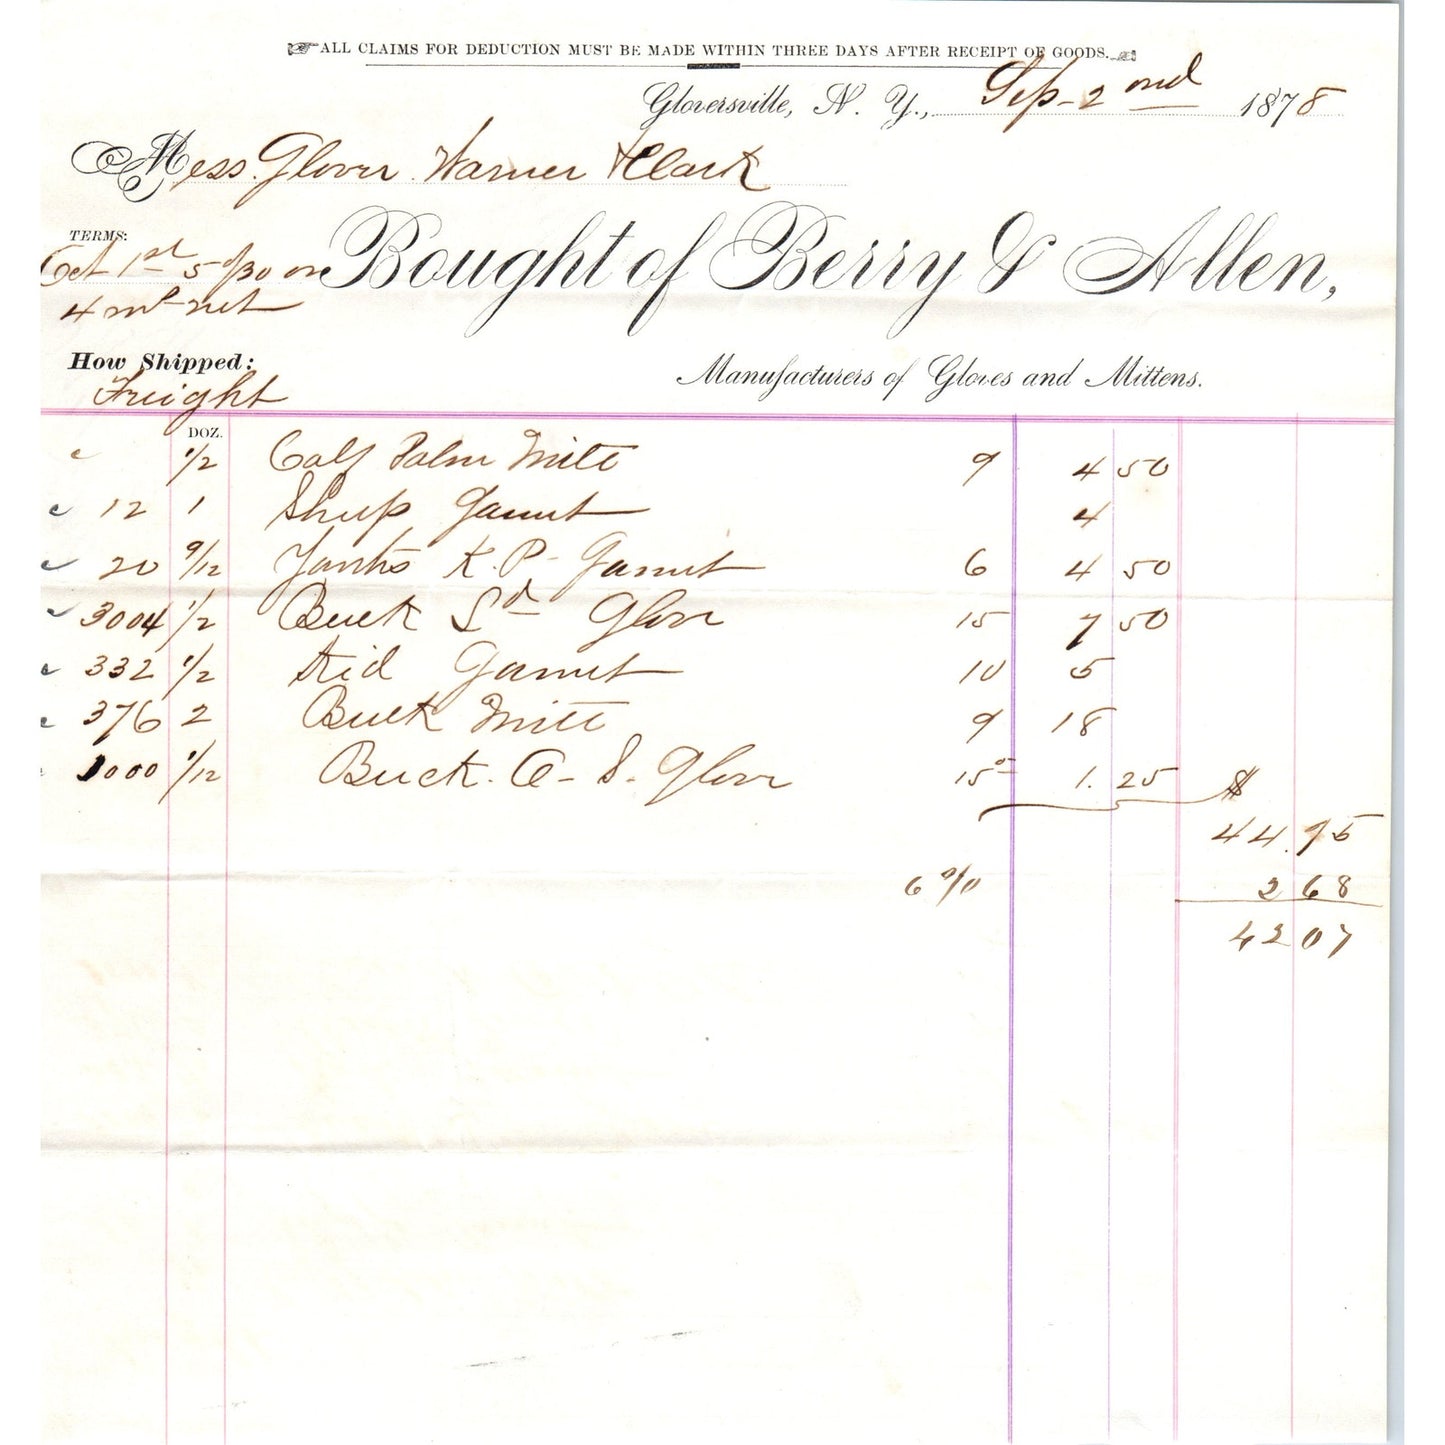 ALL CLAIMS FOR DEDUCTION MUST BE MADE WITHIN THREE DAYS AFTER RECEIPT OF GOODS.
Gloversville, N. Y., Sep-2nd 1878
Mess. Glover Warner & Clark
TERMS:
Oct 1st 5 %30 or
4 mos net
Bought of Berry & Allen,
How Shipped:
Freight
Manufacturers of Gloves and Mittens.
DOZ.
1/2 Calf Palm Mitt 9 4 50
12 1 Sheep Gaunt 4
20 9/12 K. P. Gaunt 6 4 50
3004 1/2 Buck Sd Glove 15 7 50
332 1/2 Kid Gaunt 10 5
376 2 Buck Mitt 9 18
1000 1/12 Buck. O- S. Glove 15 1.25 $
44.75
6 % 2 68
42 07